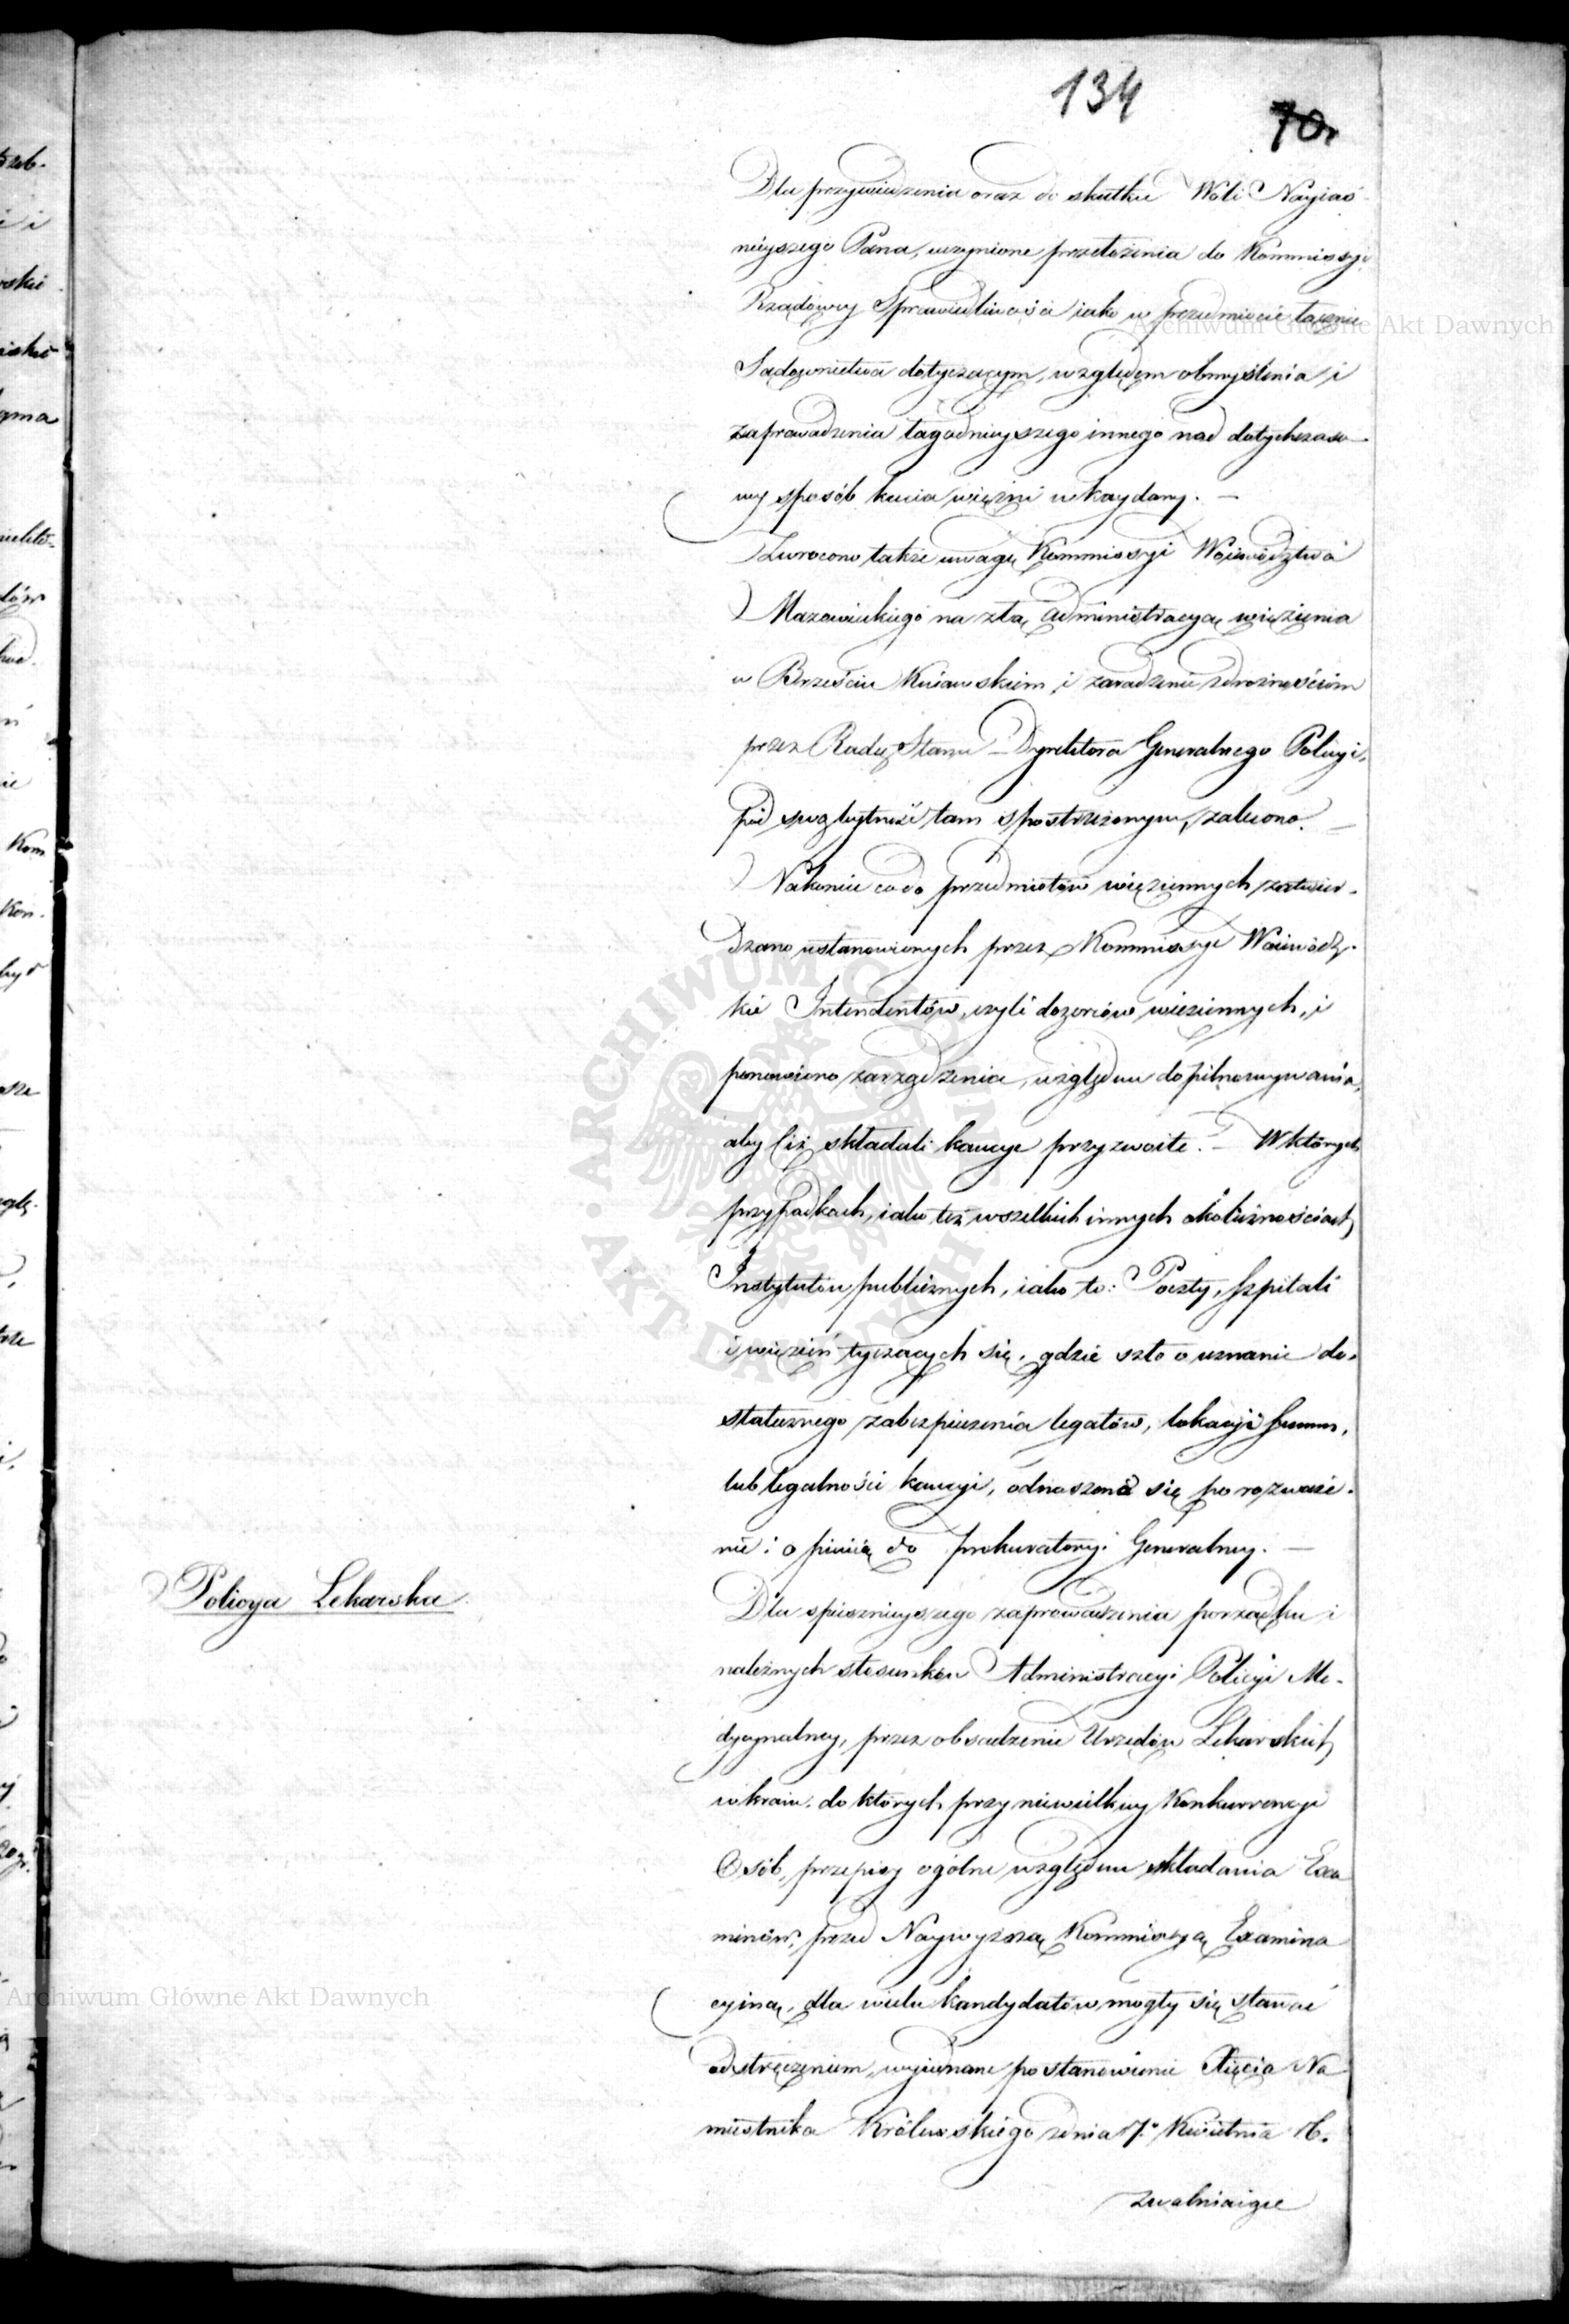 134
70.
Dla przywiedzenia oraz do skutku Woli Nayiaś-
nieyszego Pana, uczynione przełożenia do Kommissyi
Rządowey Sprawiedliwości iako w przedmiocie łącznie
Sądownictwa dotyczącym, względem obmyślenia i
zaprowadzenia łagodnieyszego innego nad dotychczaso-
wy sposób kucia więźni w kaydany. —
Zwrocono także uwagę Kommissyi Woiewództwa
Mazowieckiego na złą administracyą więzienia
w Brześciu Kuiawskiem i zaradzenie zdrożnościom
przez Radcę Stanu Dyrektora Generalnego Policyi,
pod swą bytność tam spostrzeżonym, zalecono. —
Nakoniec co do przedmiotów więziennych zatwier-
dzano ustanowionych przez Kommissye Woiewódz-
kie Intendentów, czyli dozorców więziennych, i
ponowiono zarządzenia, względem dopilnowywania,
aby Ciż składali kaucye przyzwoite. — W których
przypadkach, iako też wszelkich innych okolicznościach
Instytutów publicznych, iako to: Poczty, Szpitali
i więzień tyczących się, gdzie szło o uznanie do-
statecznego zabezpieczenia legatów, lokacyi summ,
lub legalności kaucyi, odnoszono się po rozważe-
nie i opinią do Prokuratoryi Generalney. —
Policya Lekarska
Dla spiesznieyszego zaprowadzenia porządku i
należnych stosunków Administracyi Policyi Me-
dycynalney, przez obsadzenie Urzędów Lekarskich
w kraiu, do których przy niewielkiey Konkurrencyi
Osób, przepisy ogólne względem składania Exa
minów, przed Naywyższą Kommissyą Examina
cyiną, dla wielu kandydatów mogły się stawać
odstręczeniem, wyiednane postanowienie Xięcia Na
miestnika Królewskiego z dnia 7.° Kwietnia 16.
zwalniaiące
Archiwum Główne Akt Dawnych
Archiwum Główne Akt Dawnych
ARCHIWUM GŁÓWNE AKT DAWNYCH